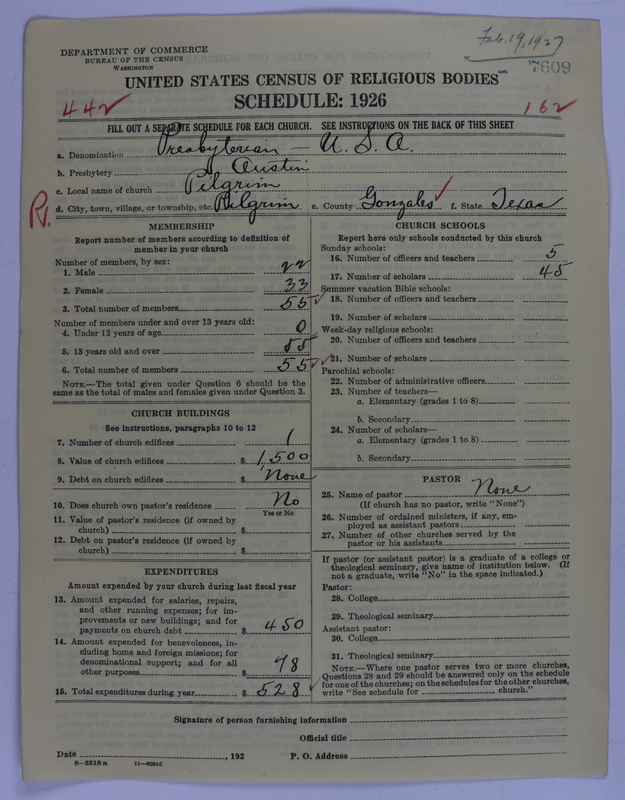 Feb. 19, 1927
DEPARTMENT OF COMMERCE
BUREAU OF THE CENSUS
WASHINGTON
7609
UNITED STATES CENSUS OF RELIGIOUS BODIES
SCHEDULE: 1926
442
162
FILL OUT A SEPARATE SCHEDULE FOR EACH CHURCH. SEE INSTRUCTIONS ON THE BACK OF THIS SHEET
a. Denomination Presbyterian — U. S. A.
b. Presbytery Austin
c. Local name of church Pilgrim
d. City, town, village, or township, etc. Pilgrim e. County Gonzales f. State Texas
MEMBERSHIP
Report number of members according to definition of
member in your church
Number of members, by sex:
1. Male 22
2. Female 33
3. Total number of members 55
Number of members under and over 13 years old:
4. Under 13 years of age 0
5. 13 years old and over 55
6. Total number of members 55
NOTE.—The total given under Question 6 should be the
same as the total of males and females given under Question 3.
CHURCH BUILDINGS
See instructions, paragraphs 10 to 12
7. Number of church edifices 1
8. Value of church edifices $ 1,500
9. Debt on church edifices $ None
10. Does church own pastor's residence No
Yes or No
11. Value of pastor's residence (if owned by
church) $
12. Debt on pastor's residence (if owned by
church) $
EXPENDITURES
Amount expended by your church during last fiscal year
13. Amount expended for salaries, repairs,
and other running expenses; for im-
provements or new buildings; and for
payments on church debt $ 450
14. Amount expended for benevolences, in-
cluding home and foreign missions; for
denominational support; and for all
other purposes $ 78
15. Total expenditures during year $ 528
CHURCH SCHOOLS
Report here only schools conducted by this church
Sunday schools:
16. Number of officers and teachers 5
17. Number of scholars 45
Summer vacation Bible schools:
18. Number of officers and teachers
19. Number of scholars
Week-day religious schools:
20. Number of officers and teachers
21. Number of scholars
Parochial schools:
22. Number of administrative officers
23. Number of teachers—
a. Elementary (grades 1 to 8)
b. Secondary
24. Number of scholars—
a. Elementary (grades 1 to 8)
b. Secondary
PASTOR
25. Name of pastor None
(If church has no pastor, write "None")
26. Number of ordained ministers, if any, em-
ployed as assistant pastors
27. Number of other churches served by the
pastor or his assistants
If pastor (or assistant pastor) is a graduate of a college or
theological seminary, give name of institution below. (If
not a graduate, write "No" in the space indicated.)
Pastor:
28. College
29. Theological seminary
Assistant pastor:
30. College
31. Theological seminary
NOTE.—Where one pastor serves two or more churches,
Questions 28 and 29 should be answered only on the schedule
for one of the churches; on the schedules for the other churches,
write "See schedule for church."
Signature of person furnishing information
Official title
Date , 192 P. O. Address
8—5518a